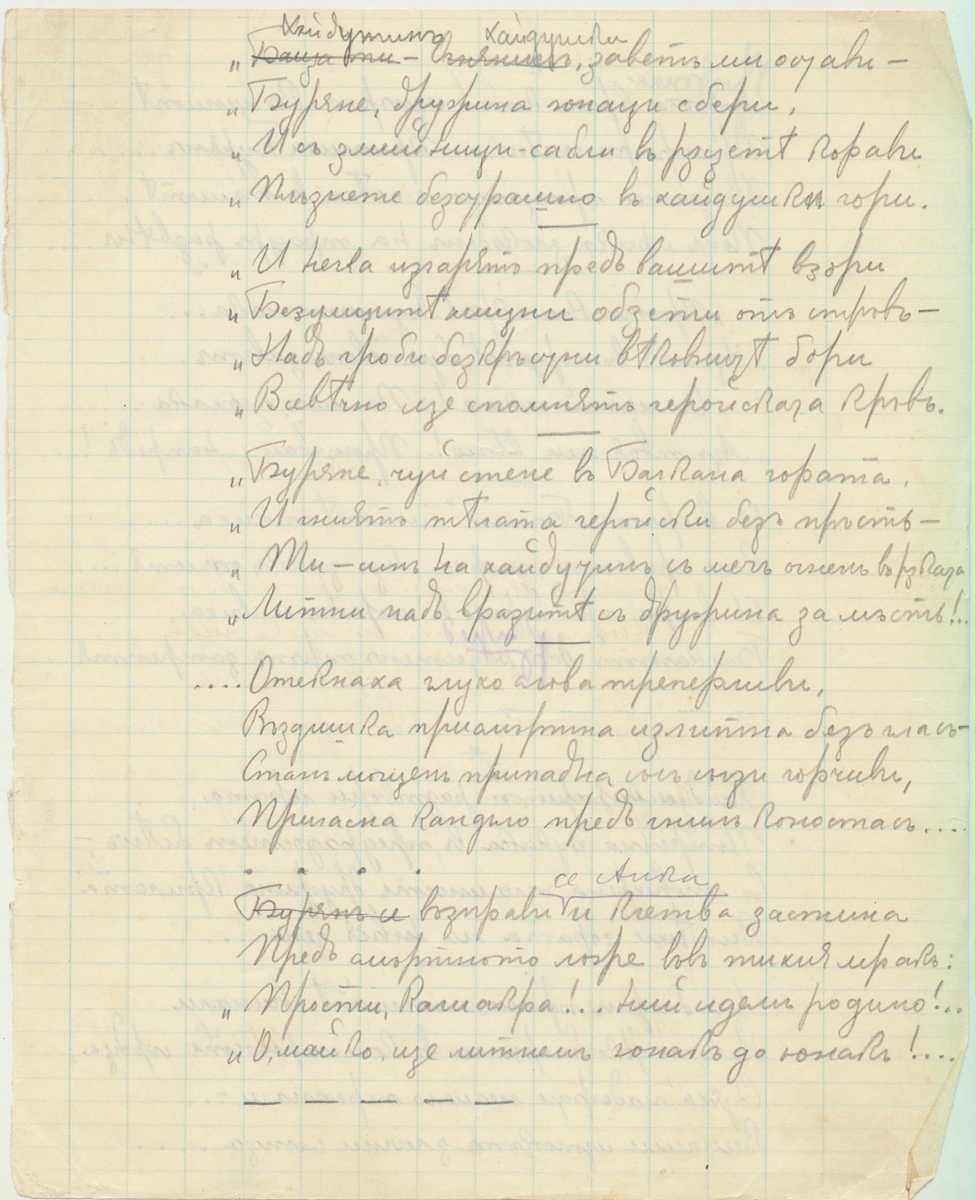 Хайдутинъ хайдушки
„Баща ти – Стоянъ, заветъ ми остави –
„Буряне, дружина юнаци сбери,
„И съ змийници-сабли въ рѫцетѣ корави
„Плъзнете безстрашно въ хайдушки гори.
„И нека изгарятъ предъ вашитѣ взори
„Безумнитѣ мисли обзети отъ стръвь –
„Надъ гроби безкръстни вѣковнитѣ бори
„Всевѣчно ще спомнятъ геройската кръвь.
„Буряне, чуй стене въ Балкана гората,
„И гниятъ тѣлата геройски безъ пръсть –
„Ти – синъ на хайдутинъ съ мечъ огненъ въ рѫката
„Литни надъ вразитѣ съ дружина за мъсть!..
....Отекнаха глухо слова трепериви,
Въздишка присмъртна излитна безъ гласъ –
Стана мощенъ припадна съсъ сълзи горчиви,
Пригасна кандило предъ гнилъ коностасъ....
. . . .
се Анка
Бурянъ се възправи и клетва застина
Предъ смъртното ложе въвъ тихия мракъ:
„Прости, Камакра!.. ний идемъ родино!..
„О, майко, ще литнемъ юнакъ до юнакъ!....